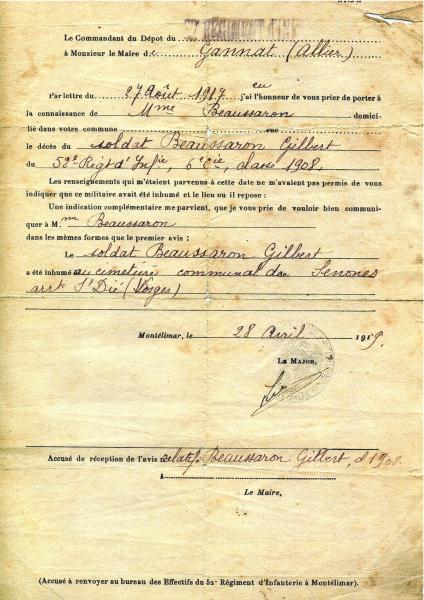 Le Commandant du Dépôt du
à Monsieur le Maire de Gannat (Allier)
Par lettre du 27 Août 1917 j'ai eu l'honneur de vous prier de porter à
la connaissance de Mme Beaussaron domici-
lié dans votre commune rue
le décès du soldat Beaussaron Gilbert
du 52e Regt d'Infie, 6e Cie, classe 1908.
Les renseignements qui m'étaient parvenus à cette date ne m'avaient pas permis de vous
indiquer que ce militaire avait été inhumé et le lieu ou il repose :
Une indication complémentaire me parvient, que je vous prie de vouloir bien communi-
quer à Mme Beaussaron
dans les mêmes formes que le premier avis :
Le soldat Beaussaron Gilbert
a été inhumé au cimetière communal de Senones
arrt St Dié (Vosges)
Montélimar, le 28 Avril 1919.
Le Major,
Accusé de réception de l'avis relatif Beaussaron Gilbert, cl 1908.
A
Le Maire,
(Accusé à renvoyer au bureau des Effectifs du 52e Régiment d'Infanterie à Montélimar).